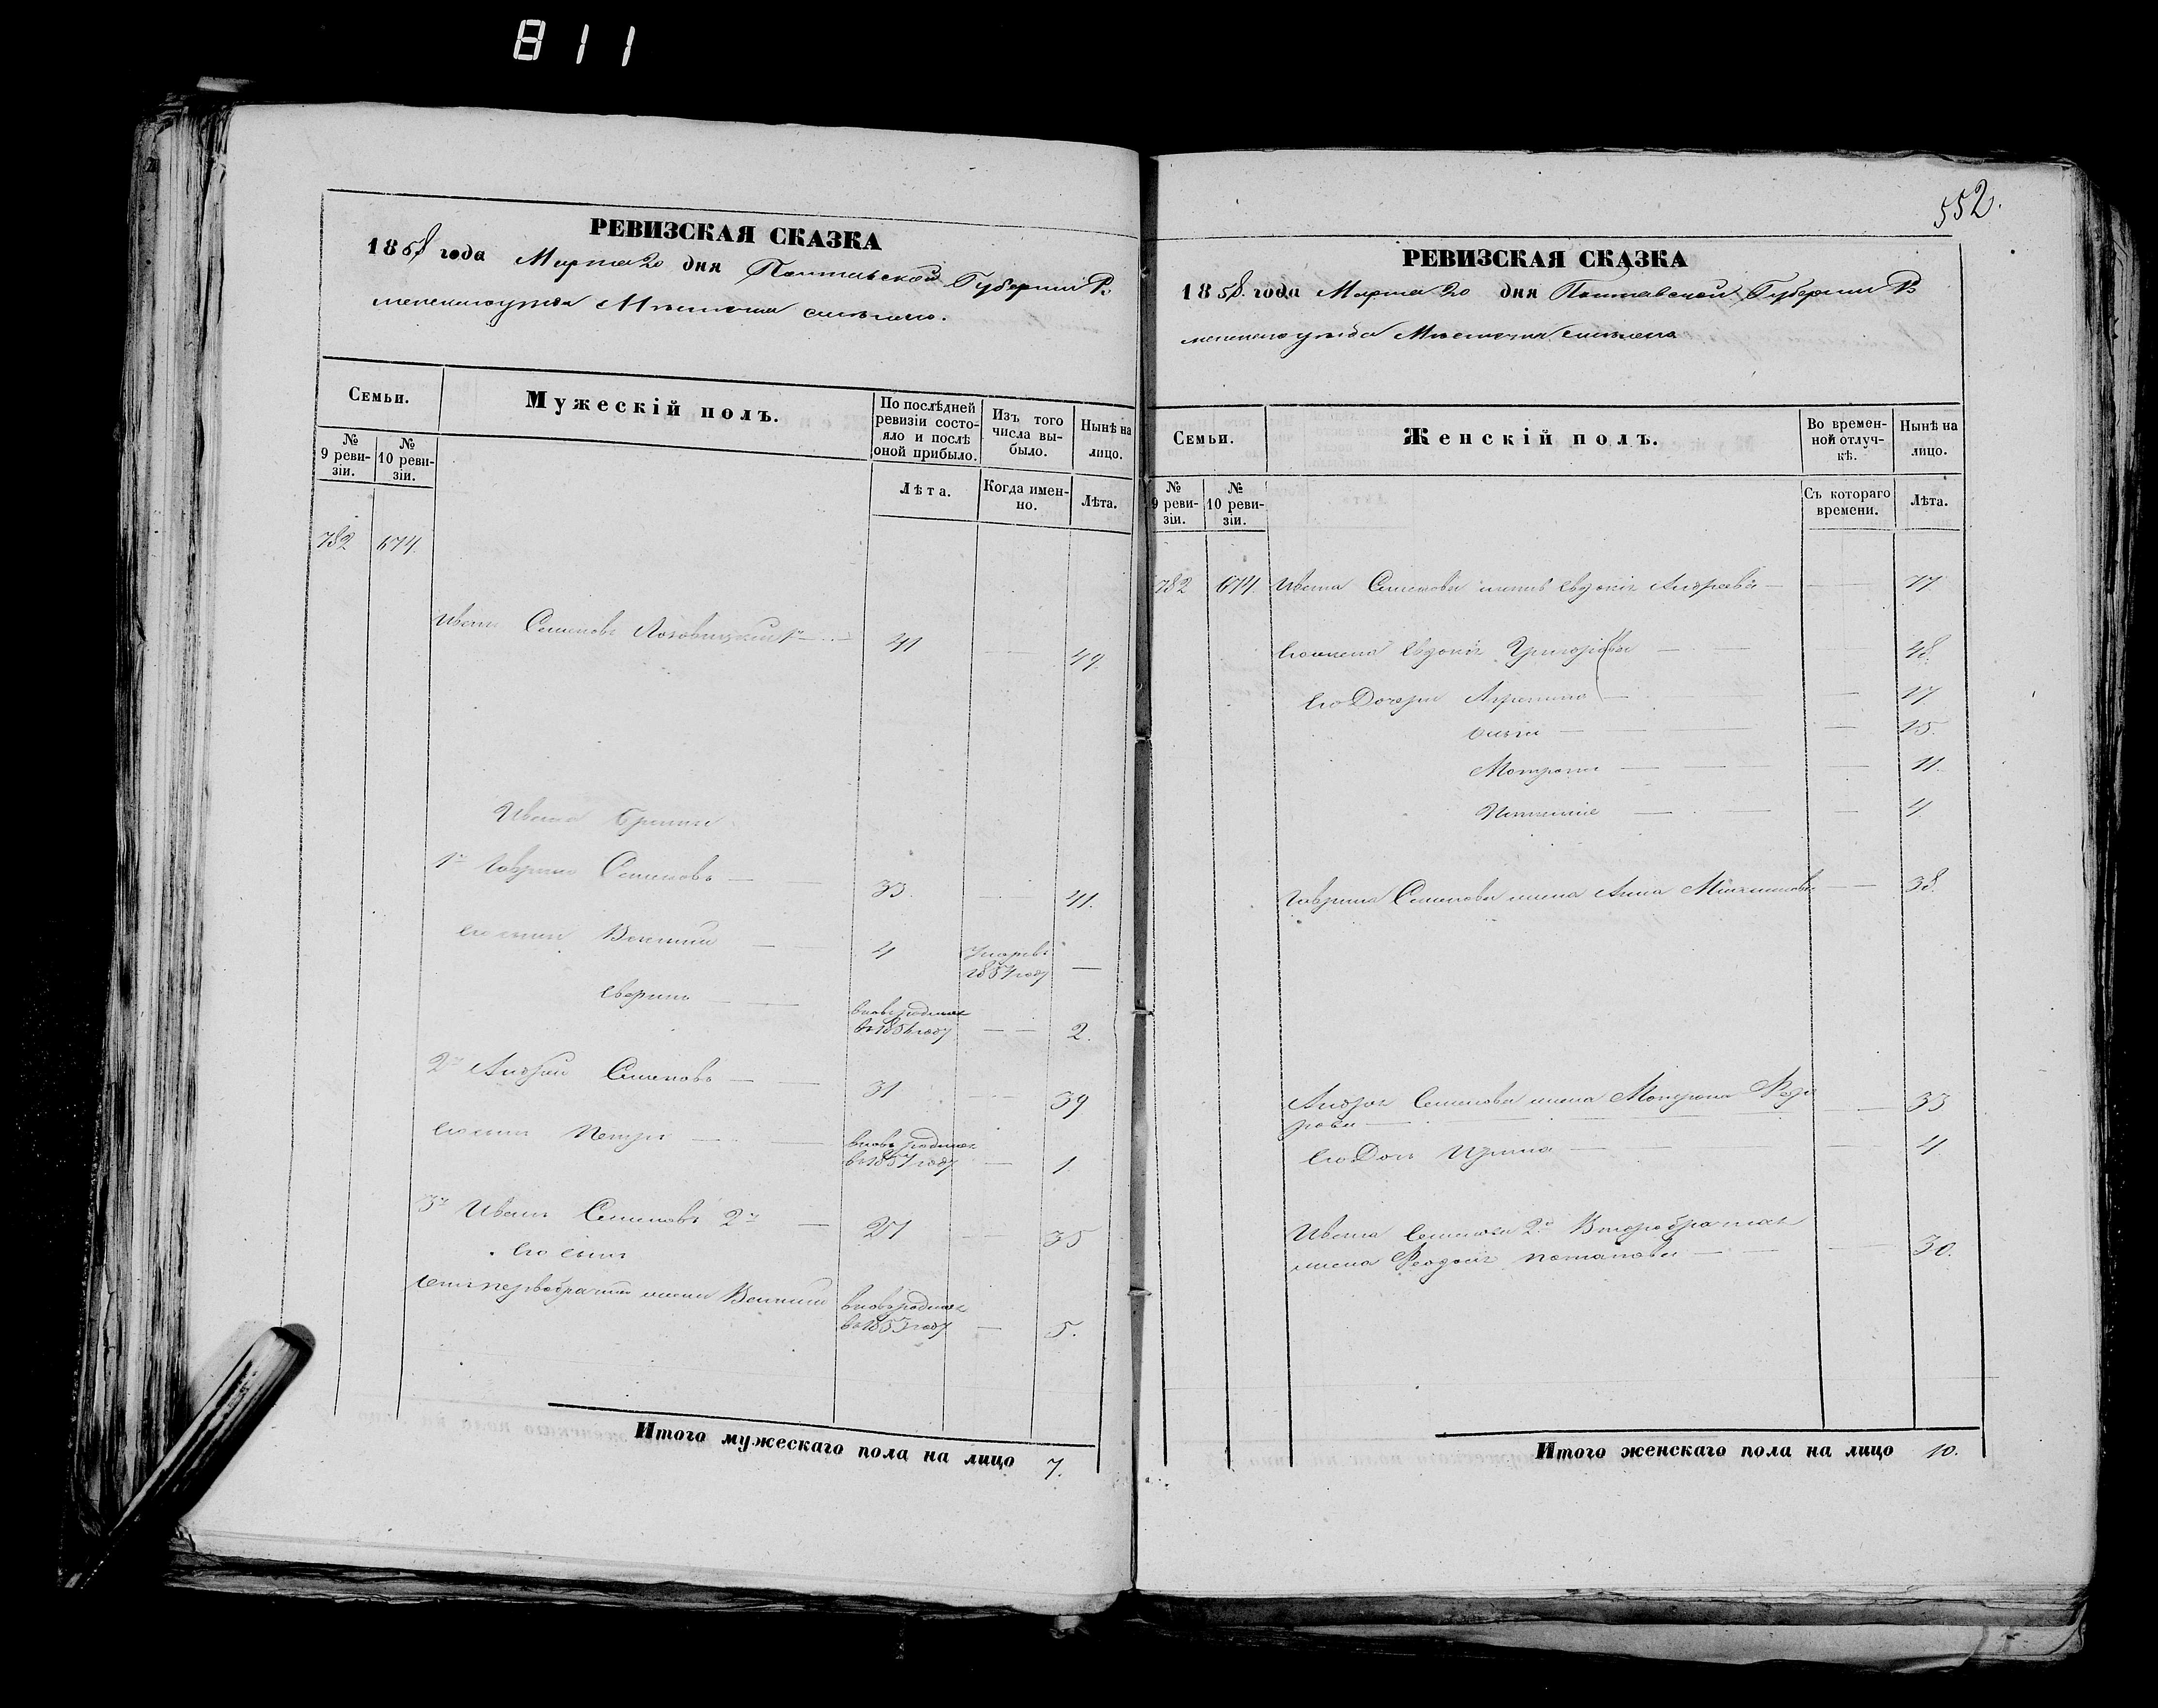 811
РЕВИЗСКАЯ СКАЗКА
1858 года Марта 20 дня Полтавской Губерніи Ро
менскаго уѣзда Мѣстечка Смѣлаго.
Семьи.
Мужескій полъ.
По послѣдней ревизіи состояло и послѣ оной прибыло.
Изъ того числа выбыло.
Нынѣ на лицо.
№ 9 ревизіи.
№ 10 ревизіи.
Лѣта.
Когда именно.
Лѣта.
782 674
Иванъ Семеновъ 1й 41 — 49.
Ивана Братья
1й Гаврило Семеновъ — 33. — 41.
Его сынъ Василій — 4 Умеръ въ 1857 году —
вновь родился въ 1856 году — 2.
2й Андрей Семеновъ — 31 — 39
Его сынъ Петръ — вновь родился въ 1857 году — 1.
3й Иванъ Семеновъ 2й — 27 — 35
Его сынъ
отъ первобрачной жены Василій вновь родился въ 1853 году — 5.
Итого мужескаго пола на лицо 7.
552.
РЕВИЗСКАЯ СКАЗКА
1858. года Марта 20 дня Полтавской Губерніи Ро
менскаго уѣзда Мѣстечка Смѣлаго
Семьи.
Женскій полъ.
Во временной отлучкѣ.
Нынѣ на лицо.
№ 9 ревизіи.
№ 10 ревизіи.
Съ котораго времени.
Лѣта.
782 674. Ивана Семенова мать Евдокія Андреева — 77
Его жена Евдокія Григорьева — 48.
Его Дочери Агрепина — 17.
15.
Мотрона — 11.
4.
Гаврила Семенова жена Анна — 38.
Андрея Семенова жена Мотрона Федо
рова — 33
Его Дочь Ирина — 4
Ивана Семенова 2го Второбрачная
жена Феодосія Потапова — 30.
Итого женскаго пола на лицо 10.